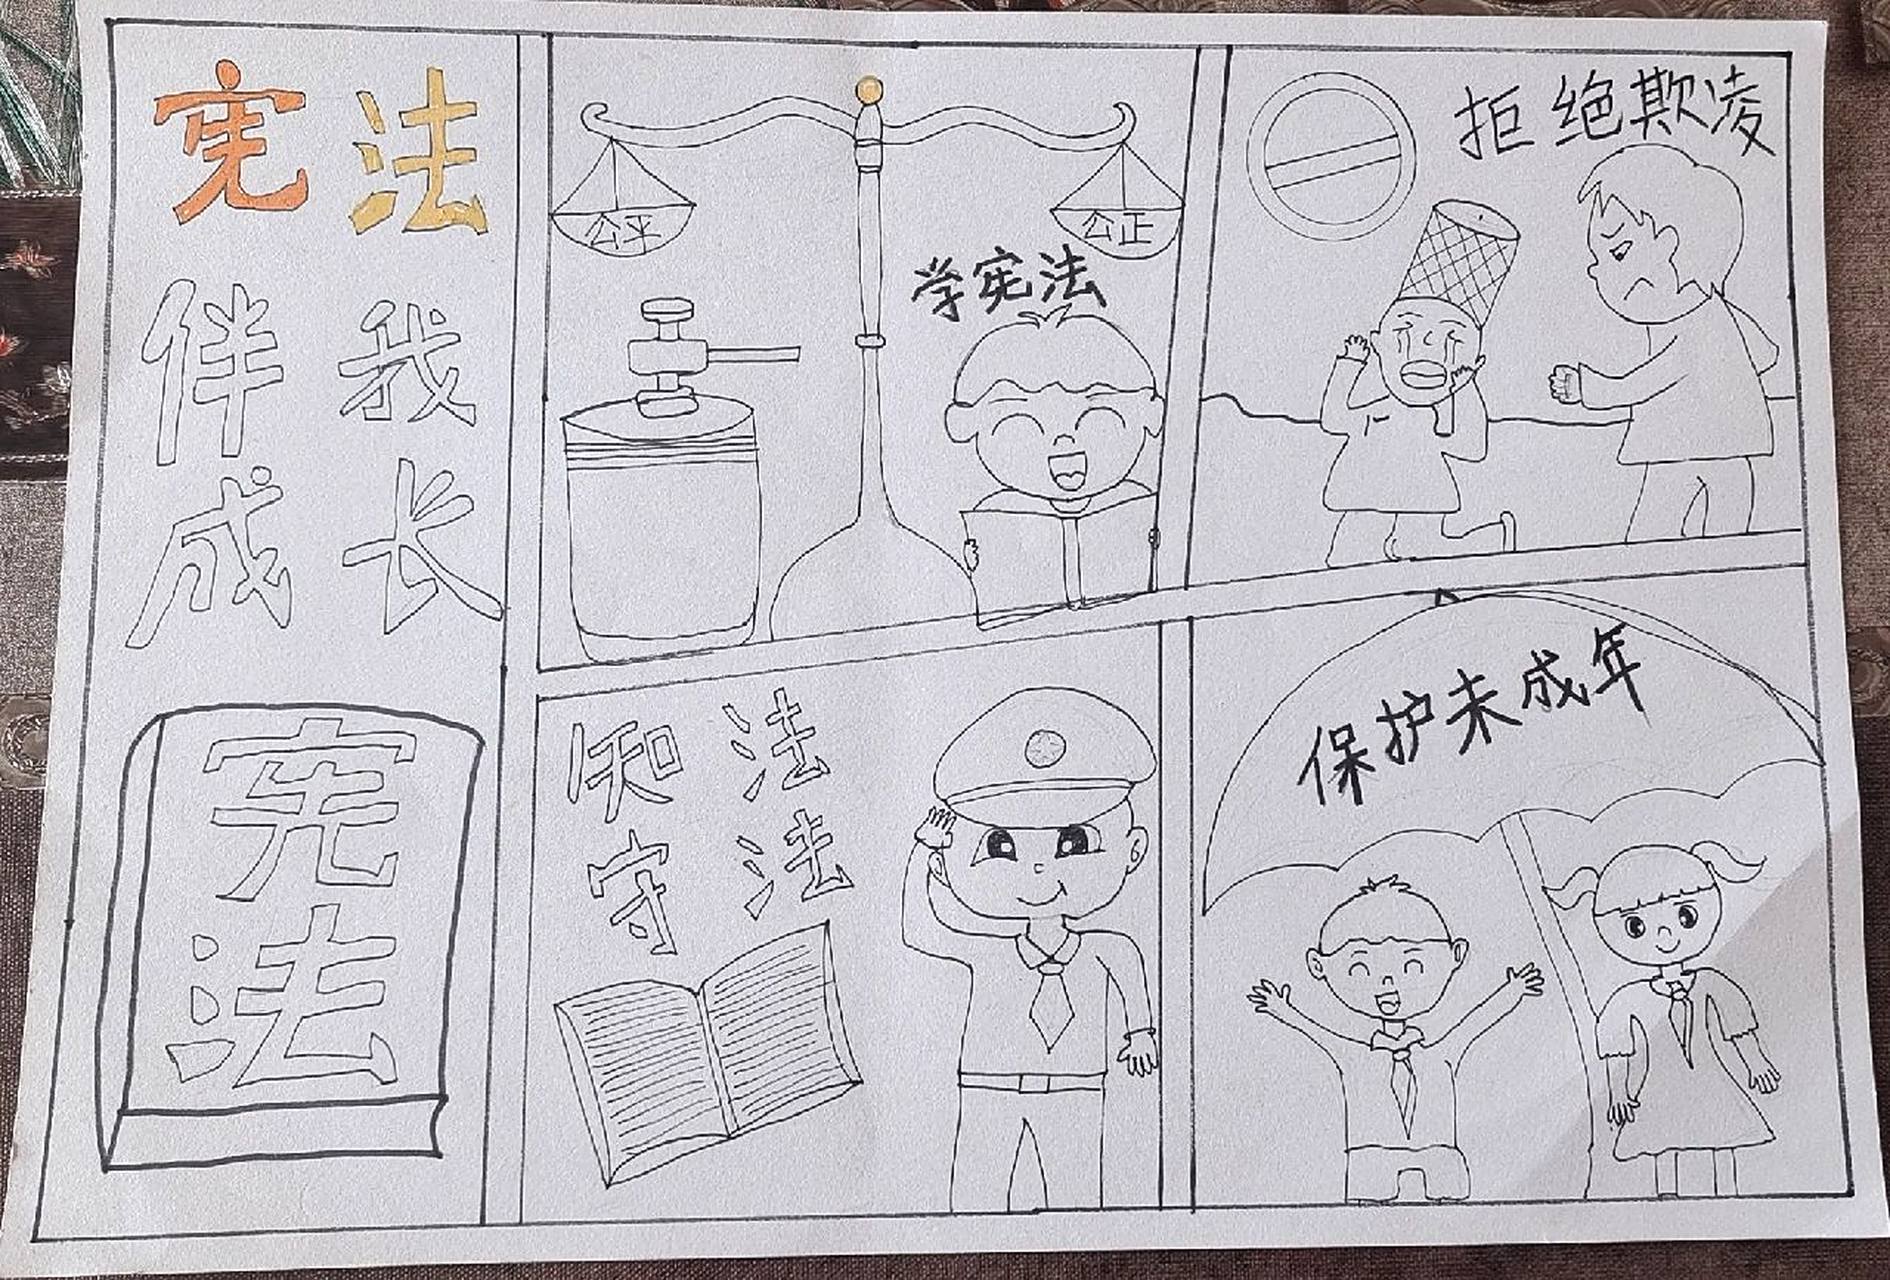 宪法
伴我
成长
宪
法
公平
公正
学宪法
拒绝欺凌
知法
守法
保护未成年